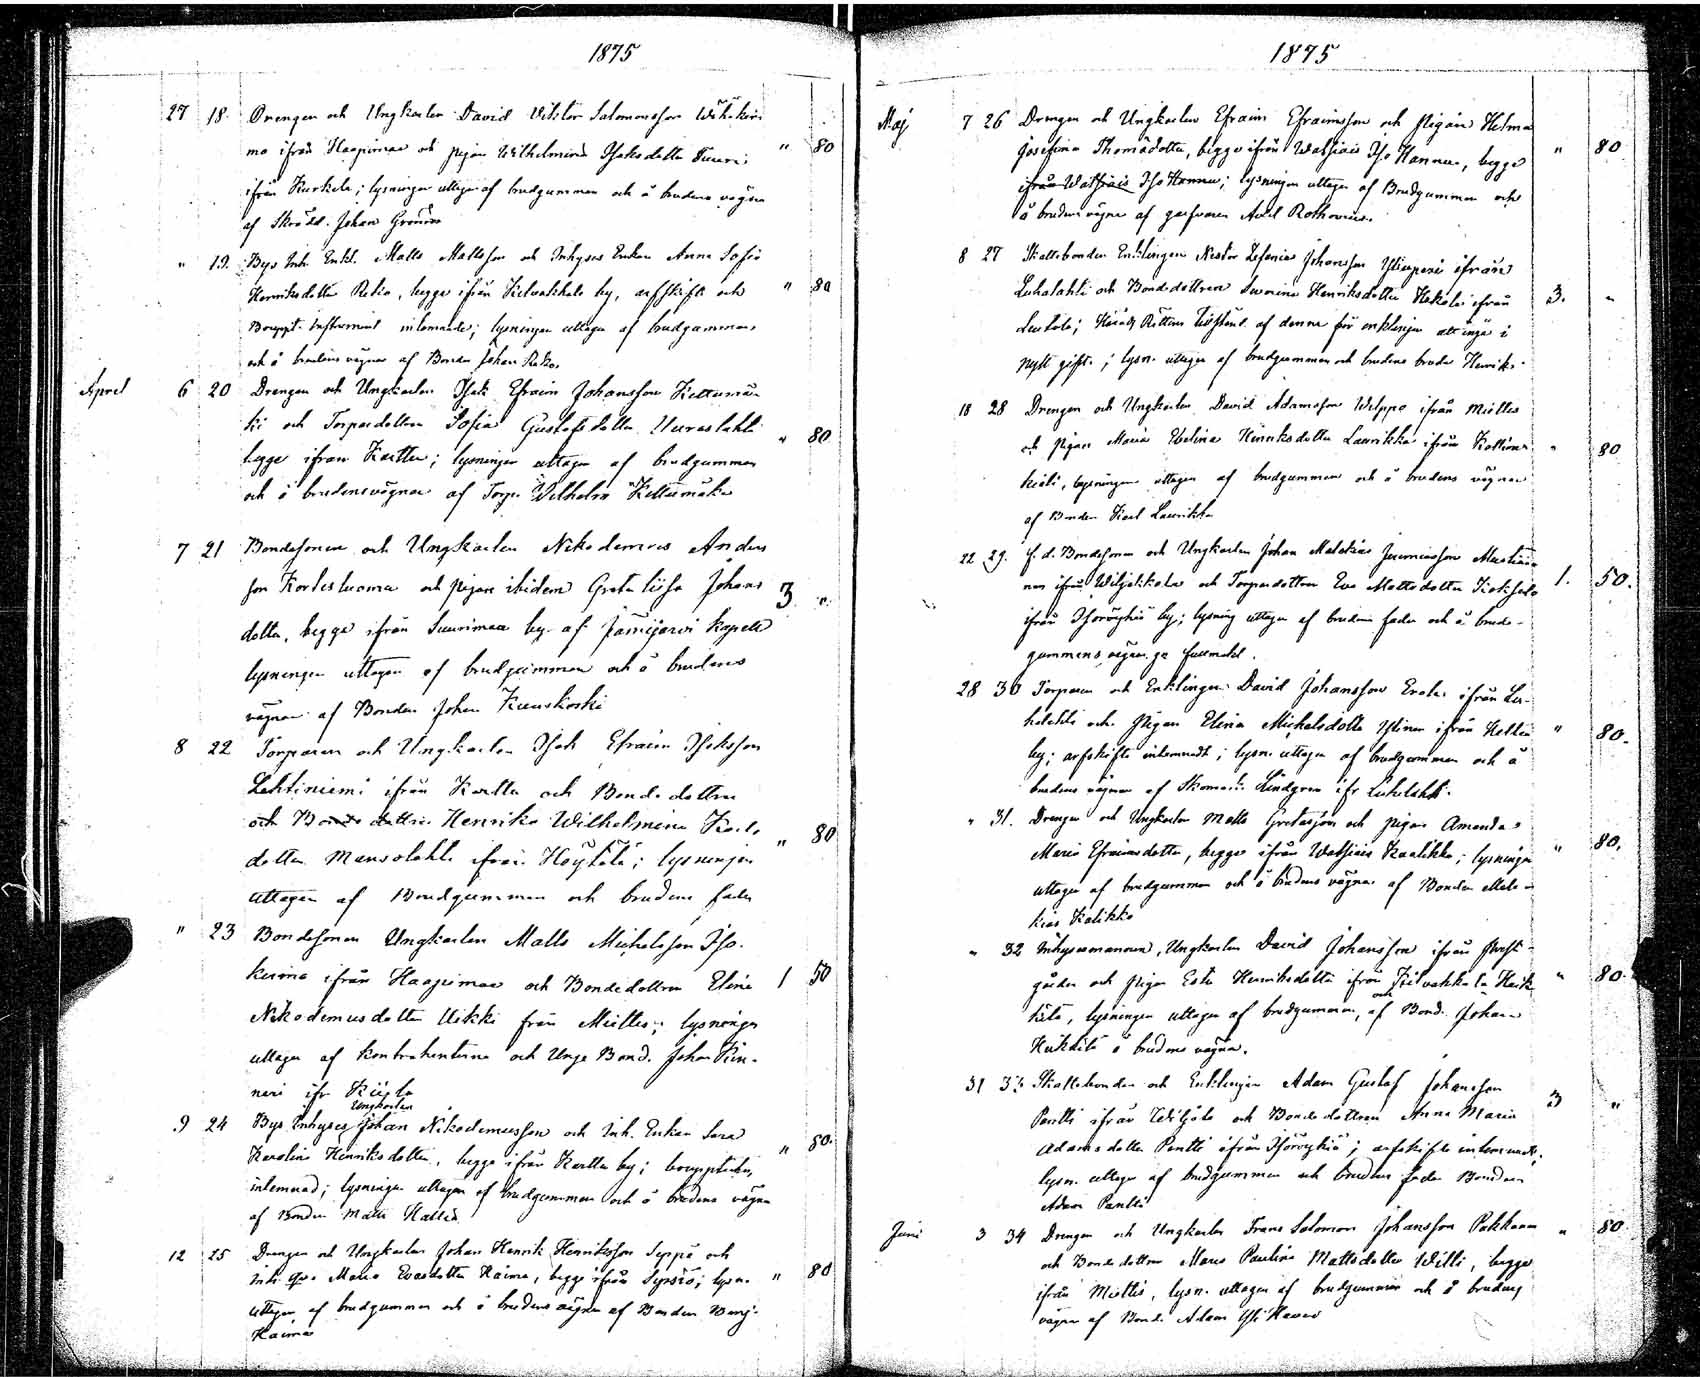 1875
27 18. Drengen och Ungkarlen David Viktor Salomonsson Wähäkoi-
mo ifrån Haapimaa och pigan Wilhelmina Isaksdotter Tuuri " 80
ifrån Kurkela; lysningen uttagen af brudgummen och å brudens vägnar
af Skrädd. Johan Grönroos
" 19. Bys Inh. Enkl. Matts Mattsson och Inhyses Enkan Anna Sofia
Henriksdotter Reko, begge ifrån Kilvakkala by, arfskifts och " 80
Bouppt. instrument inlemnade; lysningen uttagen af brudgummen
och å brudens vägnar af Bonden Johan Reko.
April 6 20 Drengen och Ungkarlen Isak Efraim Johansson Kettumä-
ki och Torparedottren Sofia Gustafsdotter Uuraslahti " 80
begge ifrån Kartto; lysningen uttagen af brudgummen
och å brudens vägnar af Torp. Wilhelm Kettumäki
7 21 Bondesonen och Ungkarlen Nikodemus Anders
son Kortesluoma och pigan ibidem Greta Lisa Johans 3 "
dotter, begge ifrån Suurimaa by af Jämijärvi kapell
lysningen uttagen af brudgummen och å brudens
vägnar af Bonden Johan Kuuskoski
8 22 Torparen och Ungkarlen Isak Efraim Isaksson
Lehtiniemi ifrån Kartto och Bondedottren
och Bonde dottren Henrika Wilhelmina Karls " 80
dotter Mansolahti ifrån Höytölä; lysningen
uttagen af Brudgummen och brudens fader
" 23 Bondesonen Ungkarlen Matts Michelsson Iso-
kuima ifrån Haapimaa och Bondedottren Elina 1 50
Nikodemusdotter Uikki från Miettis; lysningen
uttagen af kontrahenterna och Unge Bond. Johan Kin-
nari ifr
9 24 Bys Inhyses Ungkarlen Johan Nikodemusson och Inh. Enkan Sara
Karolina Henriksdotter, begge ifrån Kartto by; bouppteckn. " 80.
inlemnad; lysningen uttagen af brudgummen och å brudens vägnar
af Bonden Matts Kallio
12 25 Drengen och Ungkarlen Johan Henrik Henriksson Seppä och
Inh. Maria Evasdotter Haima, begge ifrån Sipsiö; lysn. " 80
uttagen af brudgummen och å brudens vägnar af Bonden Benj.
Haima
1875
Maj 7 26 Drengen och Ungkarlen Efraim Efraimsson och Pigan Helma
Josefina Thomädotter, begge ifrån Watsiais Iso Hannu, begge " 80
ifrån Watsiais Iso Hannu; lysningen uttagen af Brudgummen och
å brudens vägnar af garfvaren Axel Rothovius.
8 27 Skattebonden Enklingen Nestor Zefanias Johansson Ylienperi ifrån
Luhalahti och Bondedottren Serafina Henriksdotter Hekola ifrån 3. "
Leutola; Härads Rättens tillstånd af denna för enklingen att ingå i
nytt gifte; lysn. uttagen af brudgummen och brudens broder Henrik.
18 28 Drengen och Ungkarlen David Adamsson Welppo ifrån Miettis
och Pigan Maria Evelina Henriksdotter Laurikka ifrån Kallion- " 80
kieli, lysningen uttagen af brudgummen och å brudens vägnar
af Bonden Karl Laurikka
22 29. f.d. Bondesonen och Ungkarlen Johan Malakias Jeremiasson
nen ifrån Wiljalikala och Torparedottren Eva Mattsdotter Koksalo 1. 50.
ifrån Isoröyhiö by; lysning uttagen af brudens fader och å brud-
gummens vägnar pr fullmakt.
28 30 Torparen och Enklingen David Johansson Erola ifrån Lu-
halahti och Pigan Elina Michelsdotter Ylinen ifrån Kallio " 80.
by; arfskifte inlemnadt; lysn. uttagen af brudgummen och å
brudens vägnar af Skomak. Lindgren ifr Luhalahti.
" 31. Drengen och Ungkarlen Matts Gretasson och pigan Amanda
Maria Efraimsdotter, begge ifrån Watsiais Kaalikko; lysningen " 80.
uttagen af brudgummen och å brudens vägnar af Bonden Mala-
kias Kalikko
" 32 Inhysesmannen, Ungkarlen David Johansson ifrån Prest-
gården och Pigan Ester Henriksdotter ifrån Kilvakkala Heik " 80.
kilä, lysningen uttagen af brudgummen, och af Bond. Johan
Heikkilä å brudens vägnar.
31 33 Skattebonden och Enklingen Adam Gustaf Johansson
Pentti ifrån Wiljola och Bondedottren Anna Maria 3 "
Adamsdotter Pentti ifrån Isoröyhiö; arfskifte inlemnadt;
lysn. uttagen af brudgummen och brudens fader Bonden
Adam Pentti
Juni 3 34 Drengen och Ungkarlen Frans Salomon Johansson Pukkanen " 80
och Bondedottren Maria Paulina Mattsdotter Willi, begge
ifrån Miettis, lysn. uttagen af brudgummen och å brudens
vägnar af Bond. Adam Yli Kaven